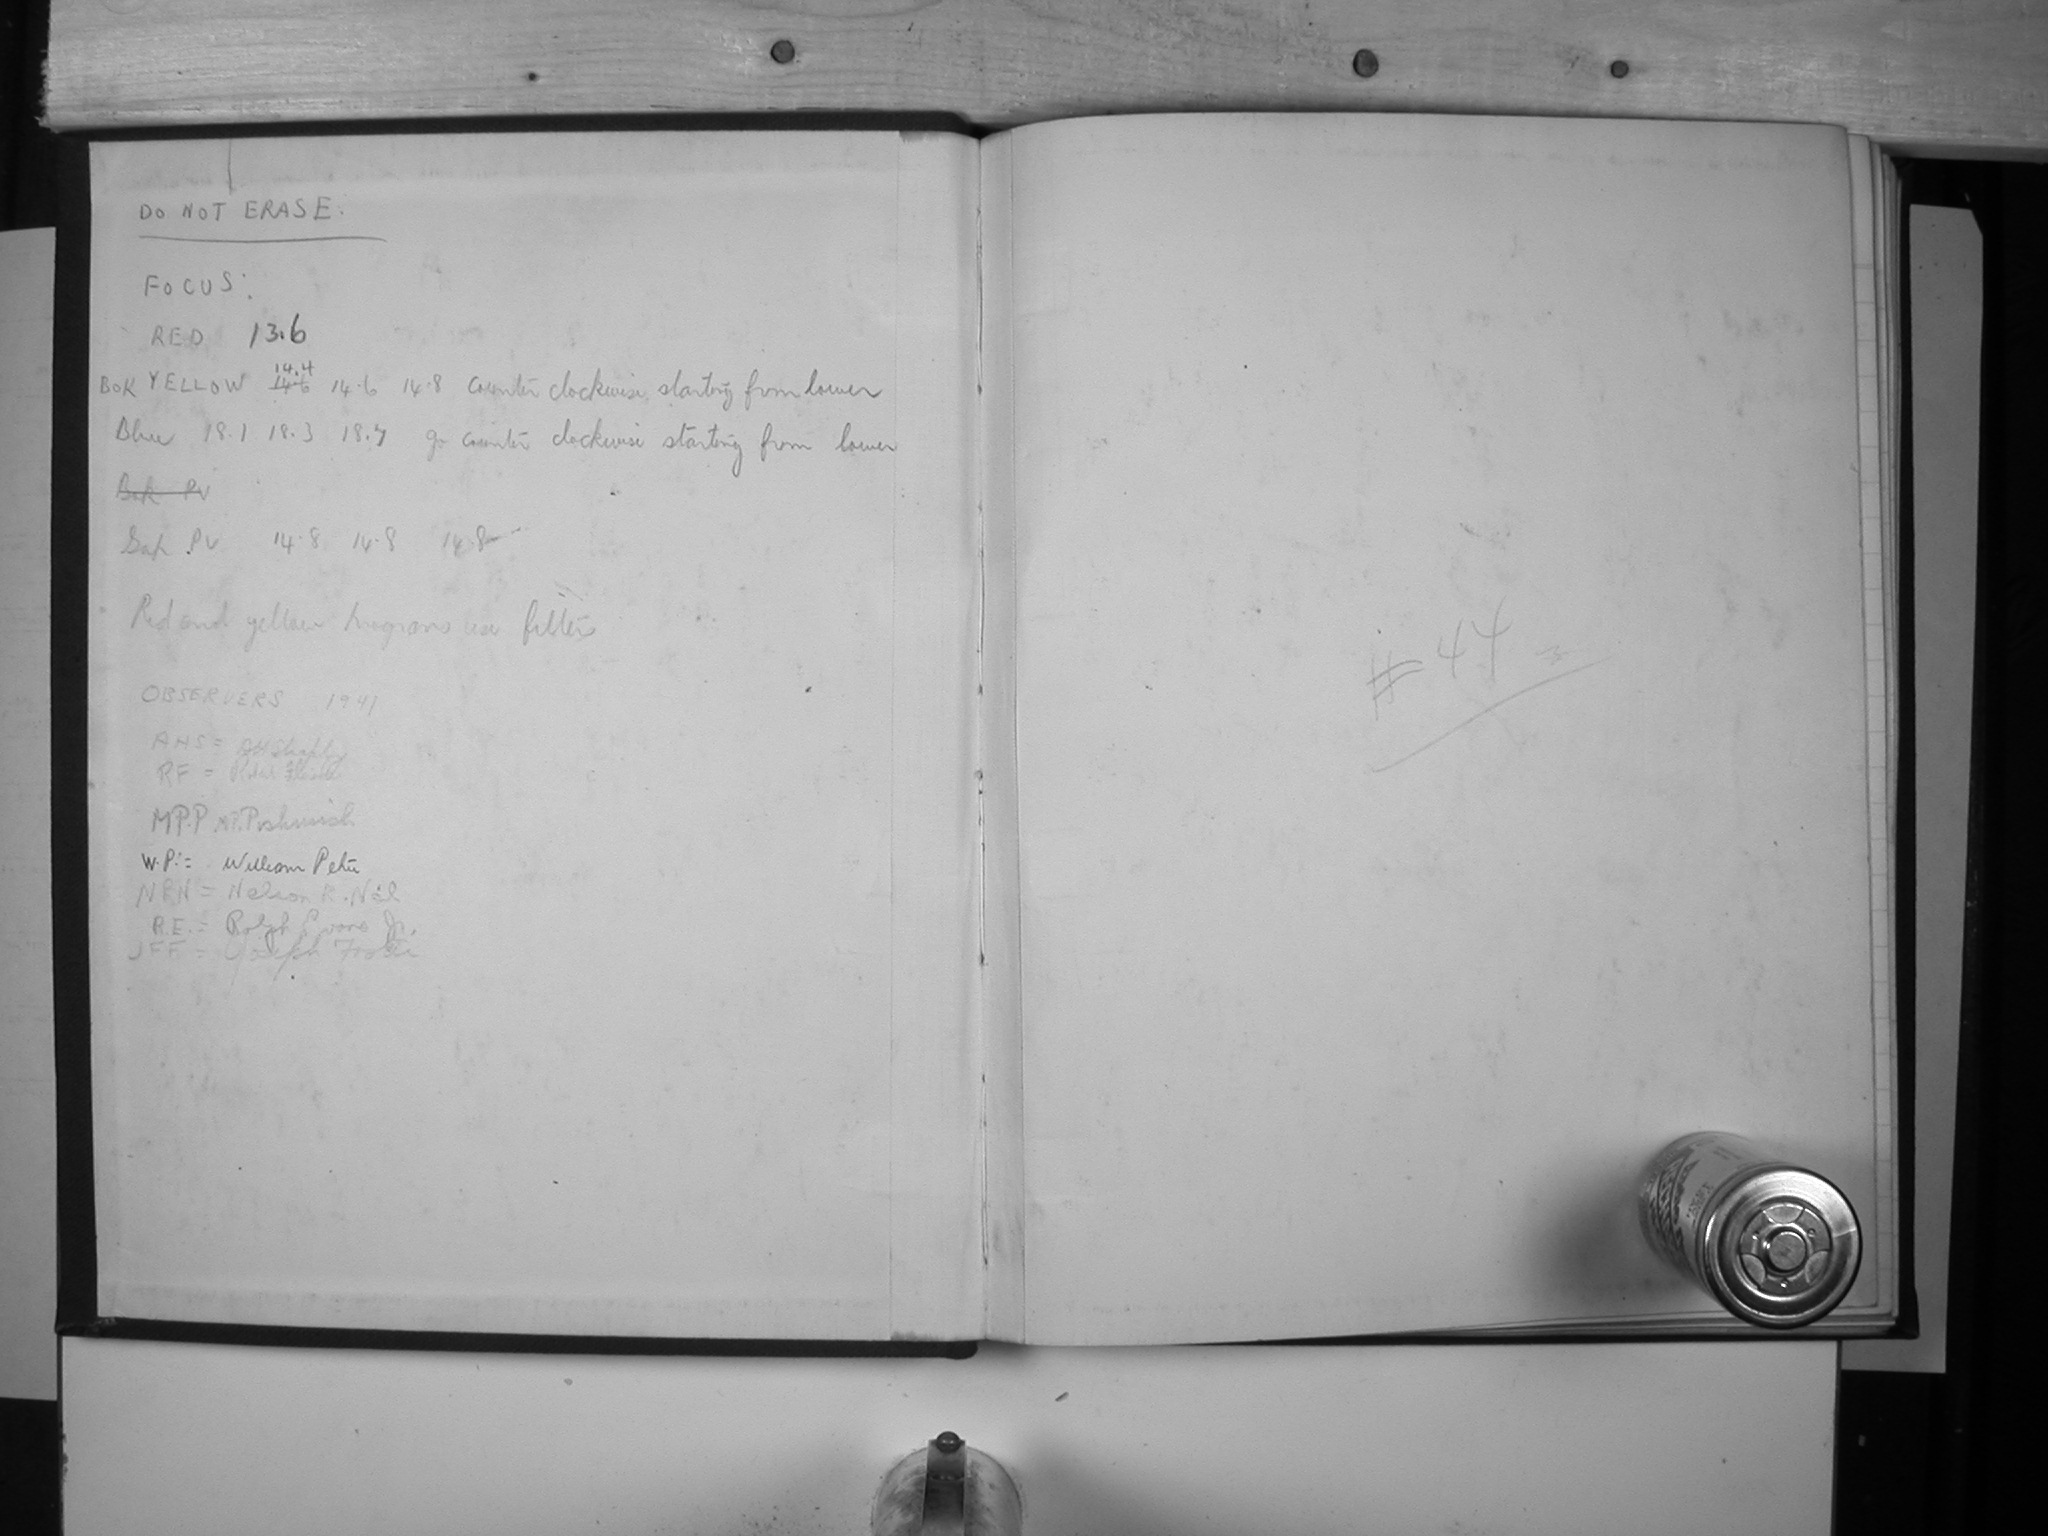 DO NOT ERASE.
FOCUS:
RED 13.6
14.4
BOK YELLOW 14.6 14.6 14.8 Counter clockwise starting from lower
Blue 18.1 18.3 18.7 go counter clockwise starting from lower
Bok PV
PV 14.8 14.8 14.8
Red and yellow programs use filter
OBSERVERS 1941
AHS = AH Shapley
RF =
MP.P M.P.
W.P. = William Peter
NRN = Nelson R.
R.E. = Ralph Evans Jr.
JFF = Joseph
#44